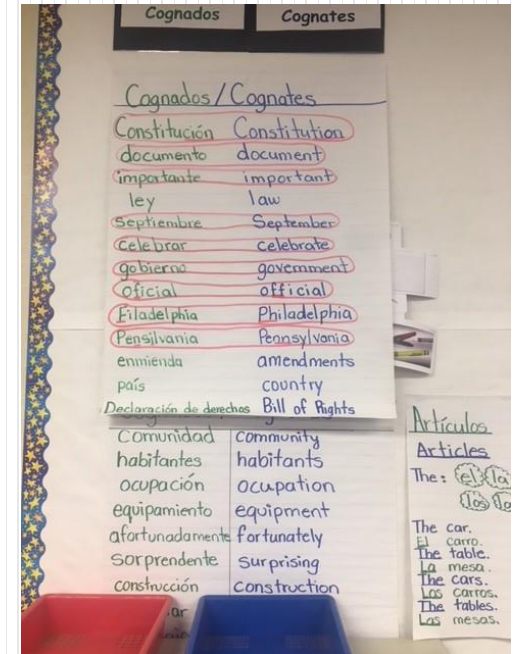 Cognados Cognates
Cognados/Cognates
Constitución Constitution
documento document
importante important
ley law
Septiembre September
celebrar celebrate
gobierno government
oficial official
Filadelphia Philadelphia
Pensilvania Pennsylvania
enmienda amendments
país country
Declaración de derechos Bill of Rights
Comunidad community
habitantes habitants
ocupación ocupation
equipamiento equipment
afortunadamente fortunately
sorprendente surprising
construcción construction
Artículos
Articles
The: el la
los
The car.
El carro.
The table.
La mesa.
The cars.
Los carros.
The tables.
Las mesas.